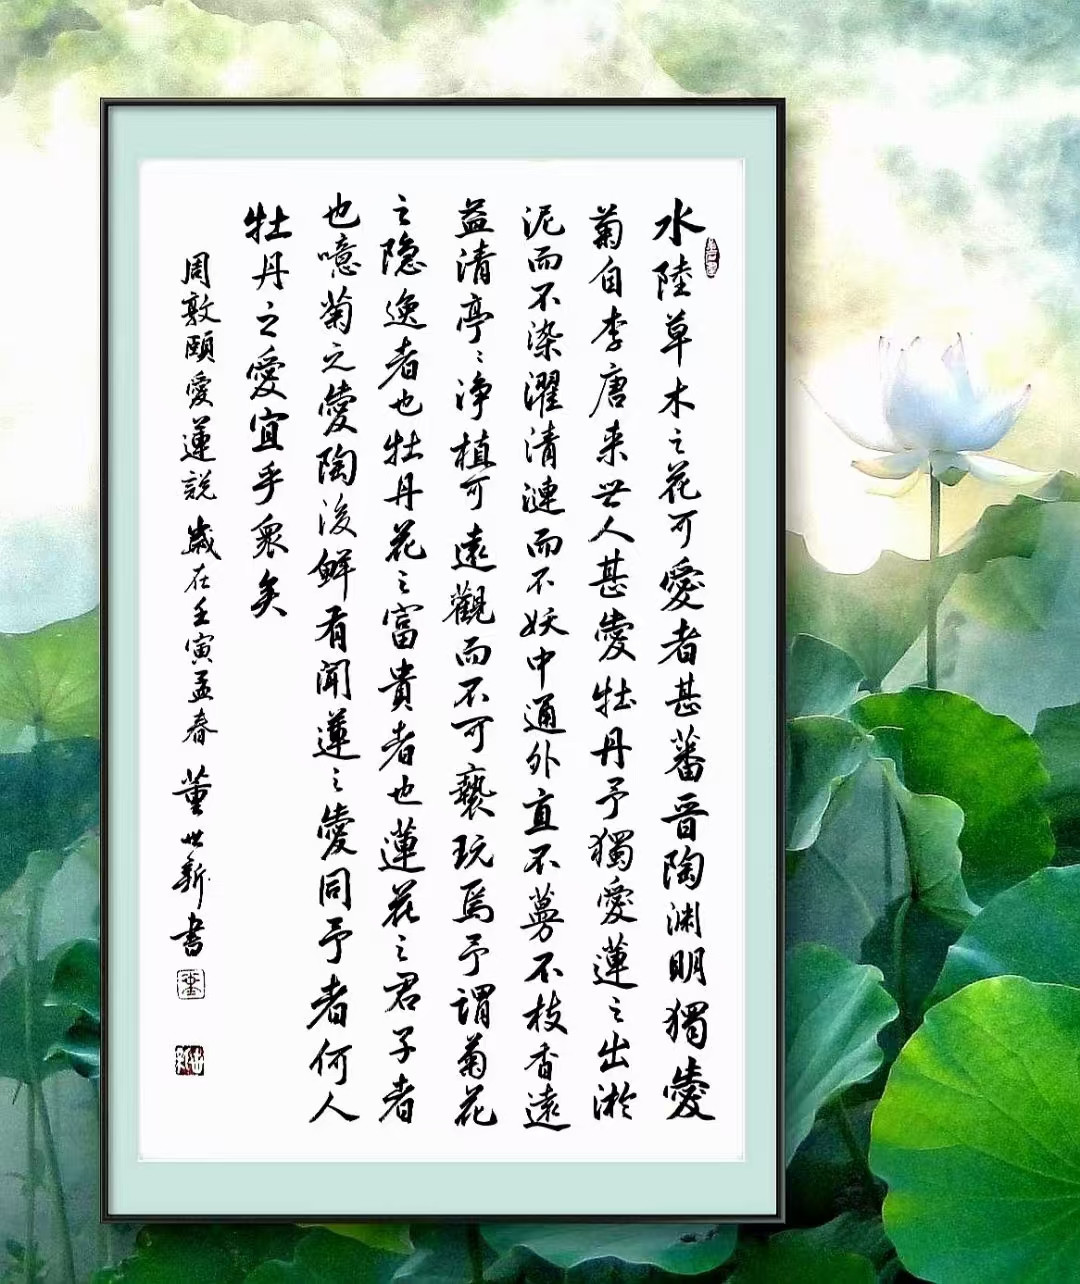 水陸草木之花可愛者甚蕃晋陶渊明獨愛
菊自李唐来世人甚愛牡丹予獨愛蓮之出淤
泥而不染濯清漣而不妖中通外直不蔓不枝香遠
益清亭〻净植可遠觀而不可褻玩焉予謂菊花
之隐逸者也牡丹花之富貴者也蓮花之君子者
也噫菊之愛陶後鮮有聞蓮之愛同予者何人
牡丹之愛宜乎衆矣
周敦頤愛蓮説 歲在壬寅孟春 董世新书